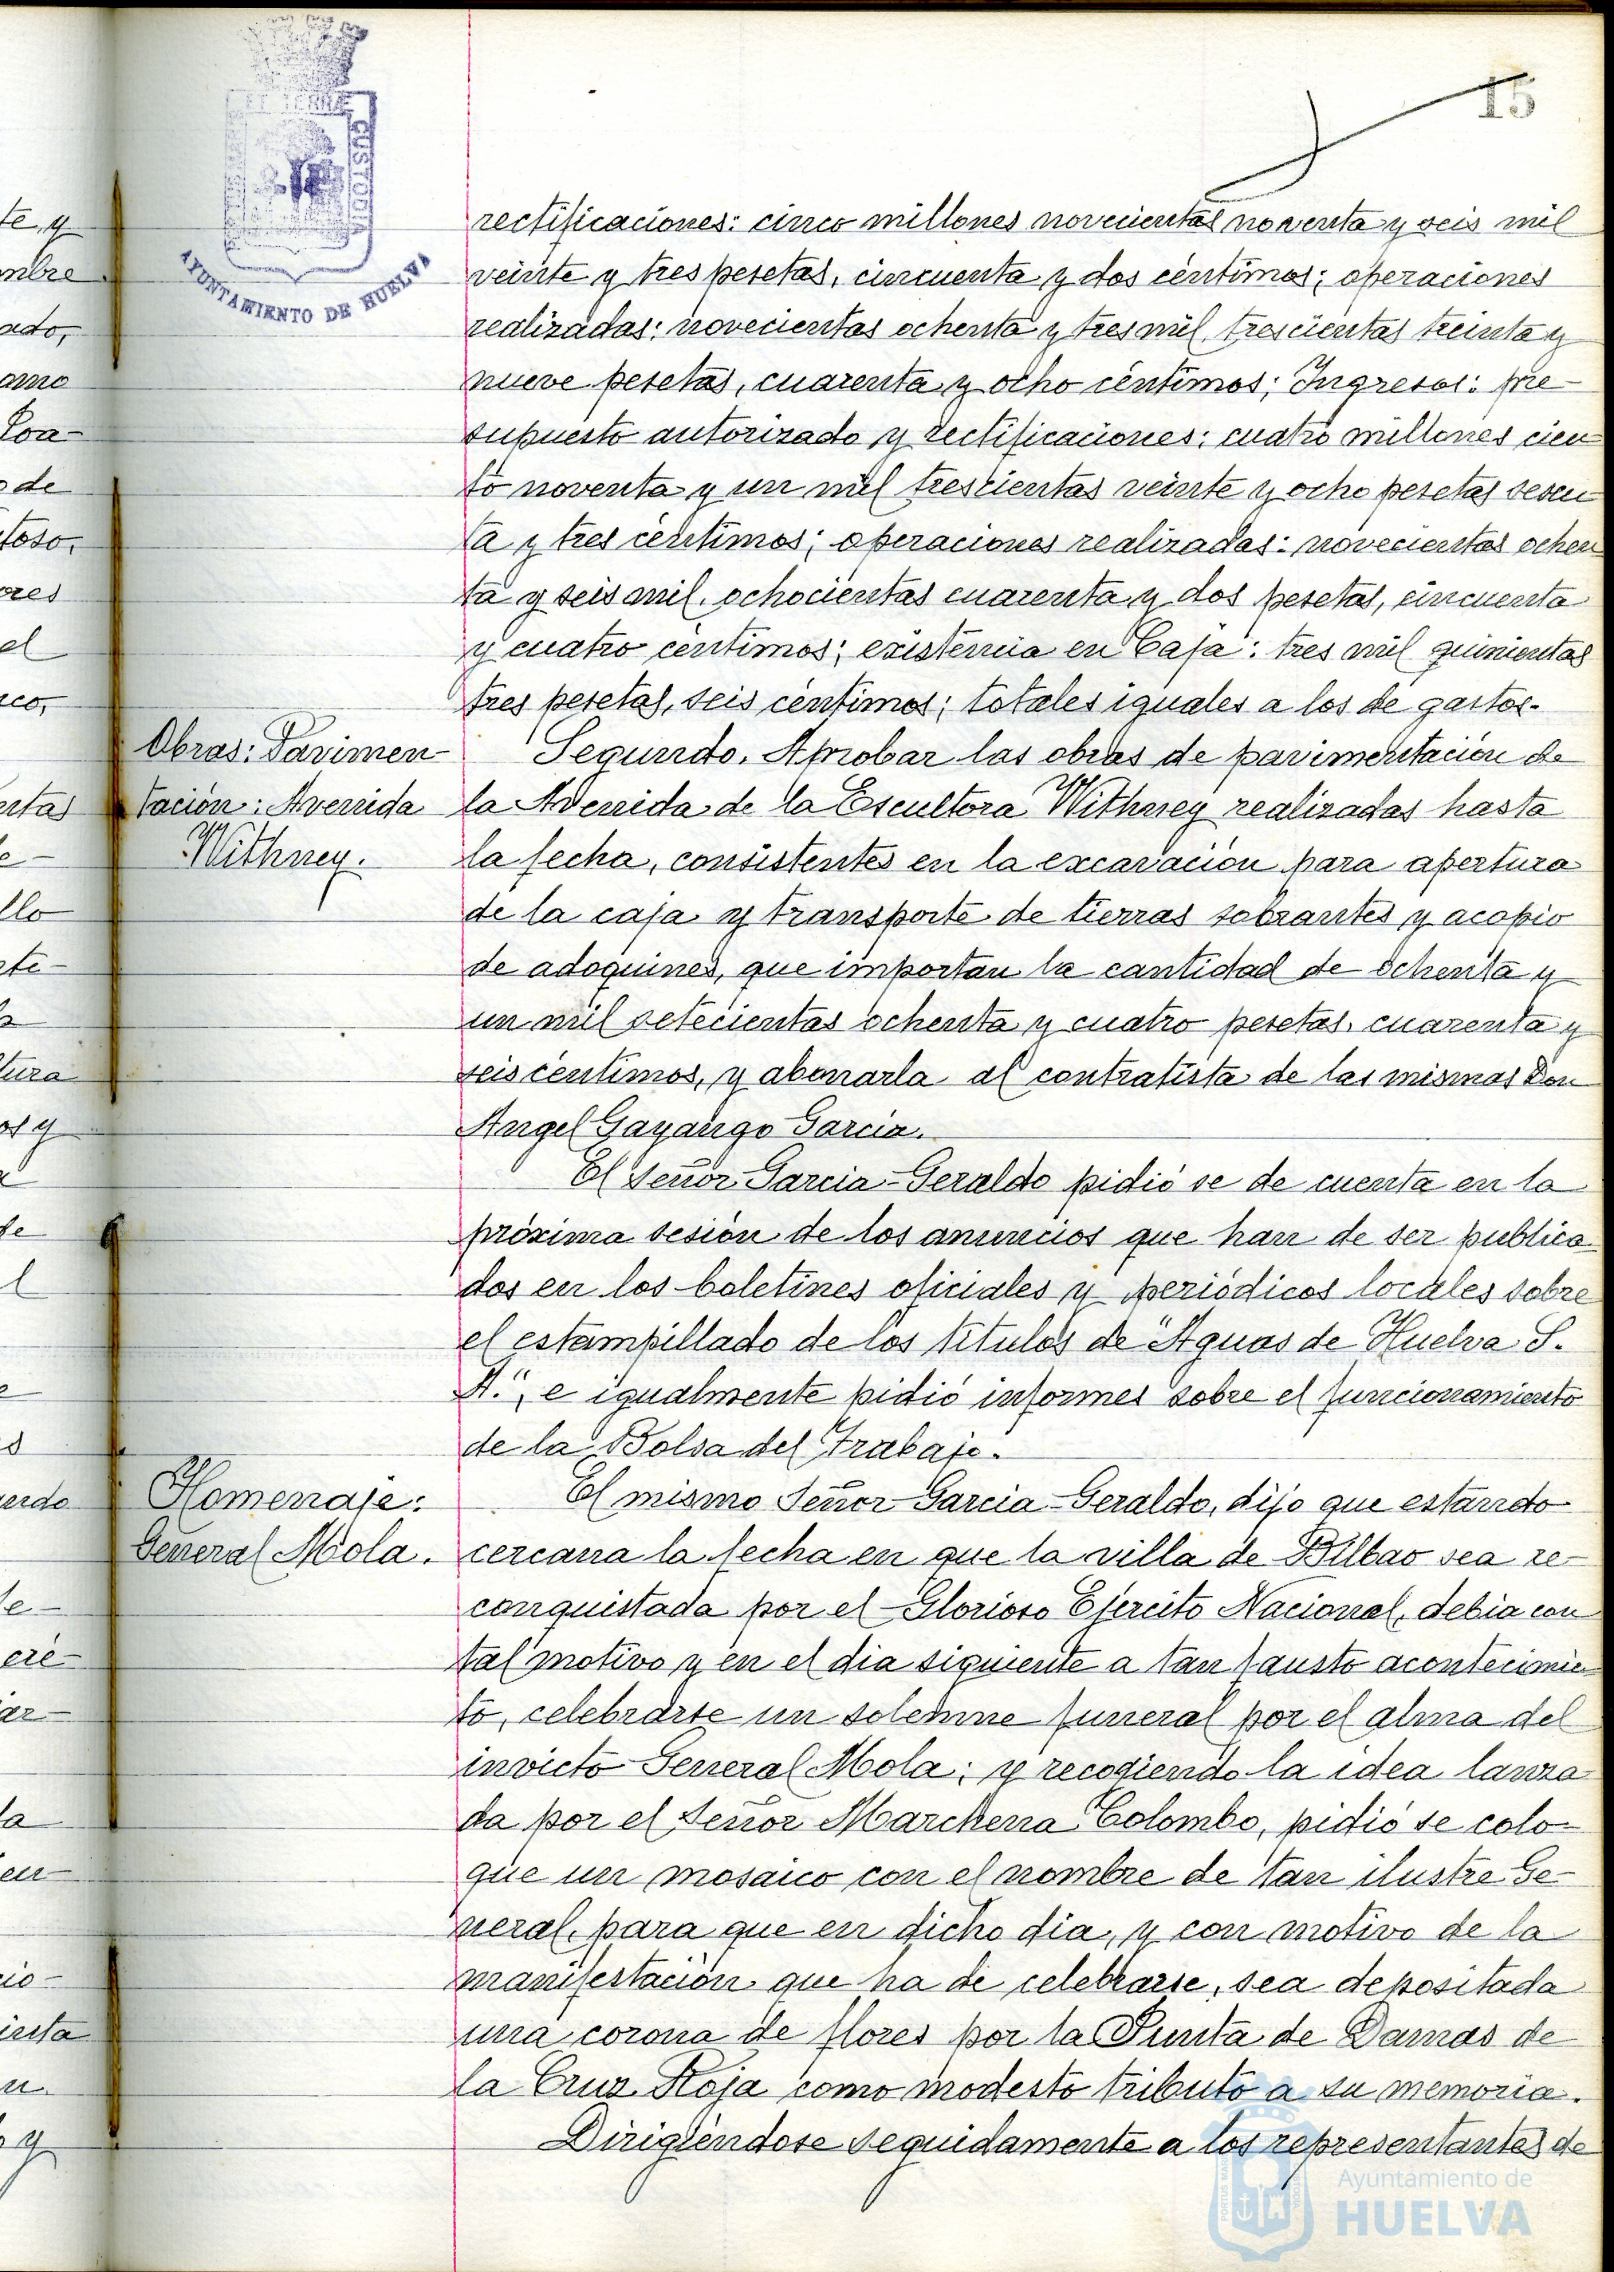 15
ET TERRÆ
CUSTODIA
AYUNTAMIENTO DE HUELVA
rectificaciones: cinco millones novecientas noventa y seis mil
veinte y tres pesetas, cincuenta y dos céntimos; operaciones
realizadas: novecientas ochenta y tres mil, trescientas treinta y
nueve pesetas, cuarenta y ocho céntimos; Ingresos: pre-
supuesto autorizado y rectificaciones: cuatro millones cien-
to noventa y un mil trescientas veinte y ocho pesetas sesen-
ta y tres céntimos; operaciones realizadas: novecientas ochen
ta y seis mil, ochocientas cuarenta y dos pesetas, cincuenta
y cuatro céntimos; existencia en Caja: tres mil quinientas
tres pesetas, seis céntimos; totales iguales a los de gastos.-
Obras: Pavimen-
tación: Avenida
Withney.
Segundo. Aprobar las obras de pavimentación de
la Avenida de la Escultora Withney realizadas hasta
la fecha, consistentes en la excavación para apertura
de la caja y transporte de tierras sobrantes y acopio
de adoquines, que importan la cantidad de ochenta y
un mil setecientas ochenta y cuatro pesetas, cuarenta y
seis céntimos, y abonarla al contratista de las mismas Don
Angel Gayango Garcia.
El Señor Garcia-Geraldo pidió se de cuenta en la
próxima sesión de los anuncios que han de ser publica-
dos en los boletines oficiales y periódicos locales sobre
el estampillado de los títulos de "Aguas de Huelva S.
A.", e igualmente pidió informes sobre el funcionamiento
de la Bolsa del Trabajo.
Homenaje:
General Mola.
El mismo Señor Garcia-Geraldo, dijo que estando
cercana la fecha en que la villa de Bilbao sea re-
conquistada por el Glorioso Ejército Nacional, debia con
tal motivo y en el dia siguiente a tan fausto acontecimien-
to, celebrarse un solemne funeral por el alma del
invicto General Mola; y recogiendo la idea lanza-
da por el Señor Marchena Colombo, pidió se colo-
que un mosaico con el nombre de tan ilustre Ge-
neral, para que en dicho dia, y con motivo de la
manifestación que ha de celebrarse, sea depositada
una corona de flores por la Junta de Damas de
la Cruz Roja como modesto tributo a su memoria.
Dirigiéndose seguidamente a los representantes de
Ayuntamiento de
HUELVA